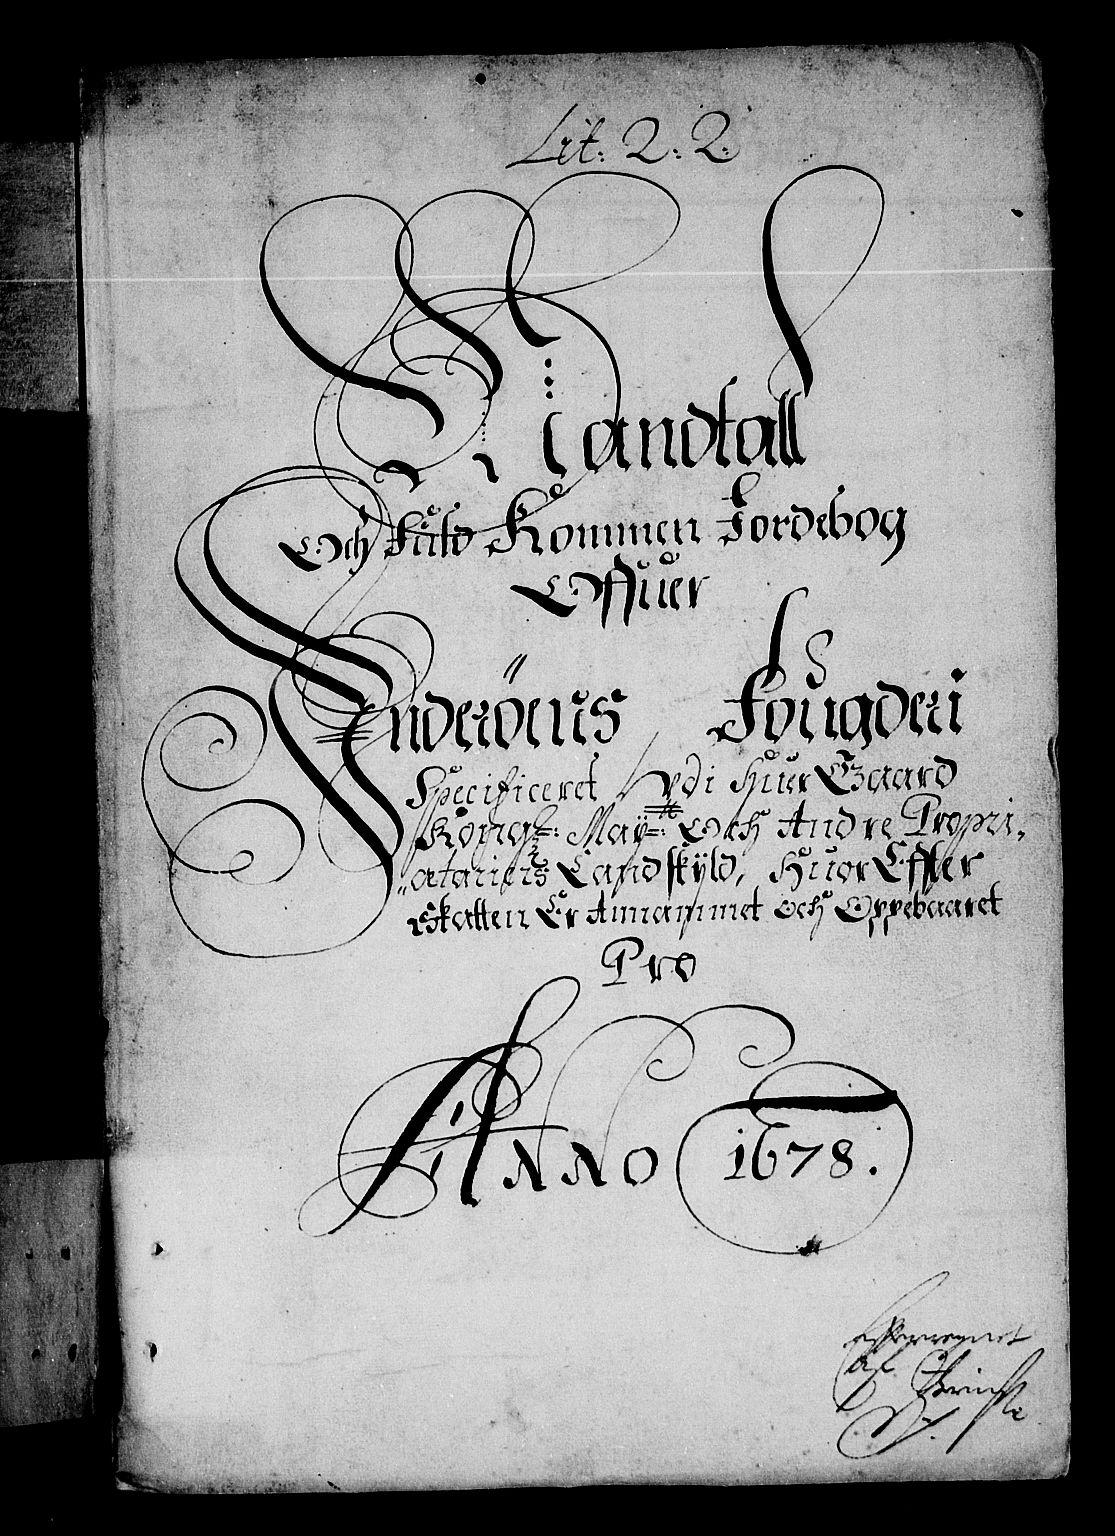 Lit: 2. 2.
Mandtall
Och Fuld Kommen Jordebog
Offuer
Inderöens Fougderi
Specificeret Udi Huer Gaard
Kongl: May: Och Andre Propri,
„etariers Landskÿld, Huor Effter
Skatten Er Annammet och Oppebaaret
Pro
Anno 1678.
af